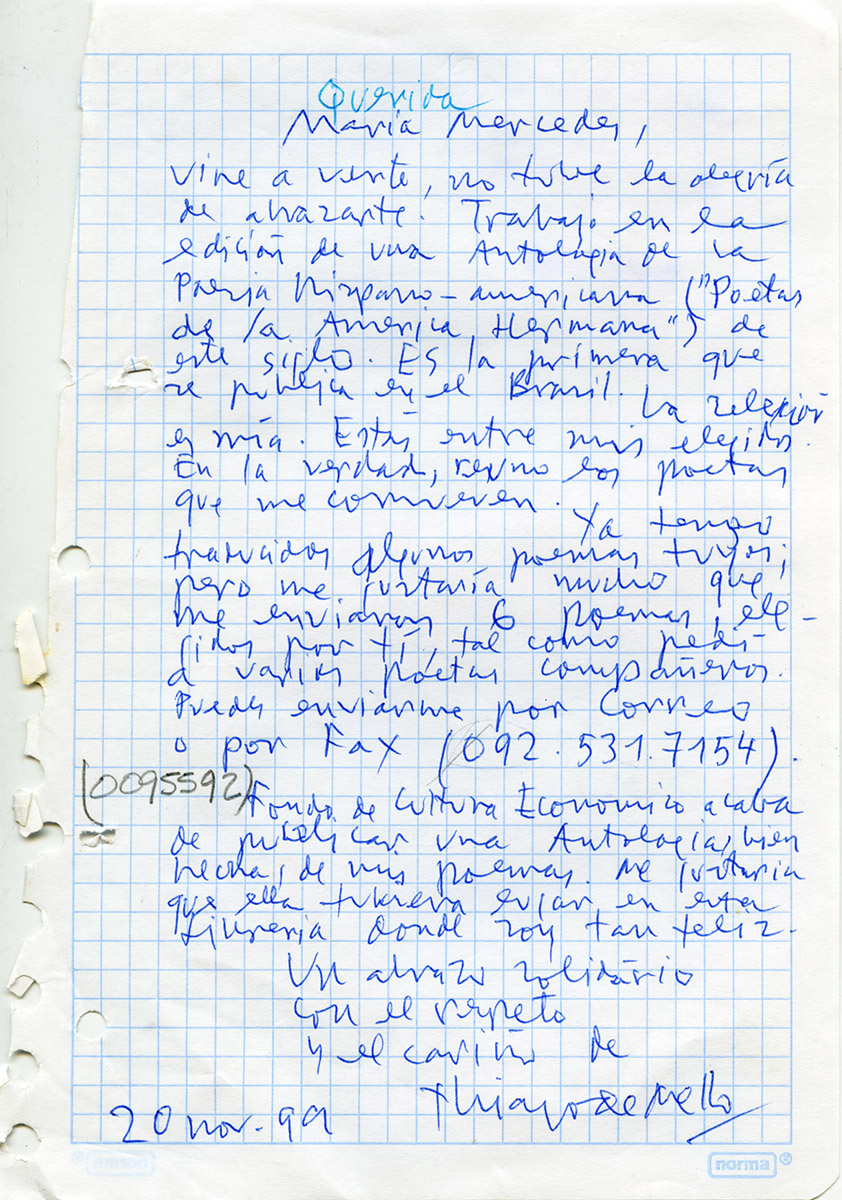 Querida
María Mercedes,
vine a verte, no tuve la alegría
de abrazarte. Trabajo en la
edición de una Antologia de la
Poesia Hispano-americana ("Poetas
de la America Hermana") de
este siglo. Es la primera que
se publica en el Brasil. La selección
es mía. Estás entre mis elegidos.
En la verdad, reuno los poetas
que me conmueven. Ya tengo
traducidos algunos poemas tuyos;
pero me gustaría mucho que
me enviaras 6 poemas, ele-
gidos por tí, tal como pedí
a varios poetas compañeros.
Puedes enviarme por Correo
o por Fax (092.531.7154).
(0095592)
Fondo de Cultura Economico acaba
de publicar una Antologia, bien
hecha, de mis poemas. Me gustaria
que ella tuviera lugar en esta
Libreria donde soy tan feliz.
Un abrazo solidário
con el respeto
y el cariño de
Thiago de Mello
20 nov. 99
norma®